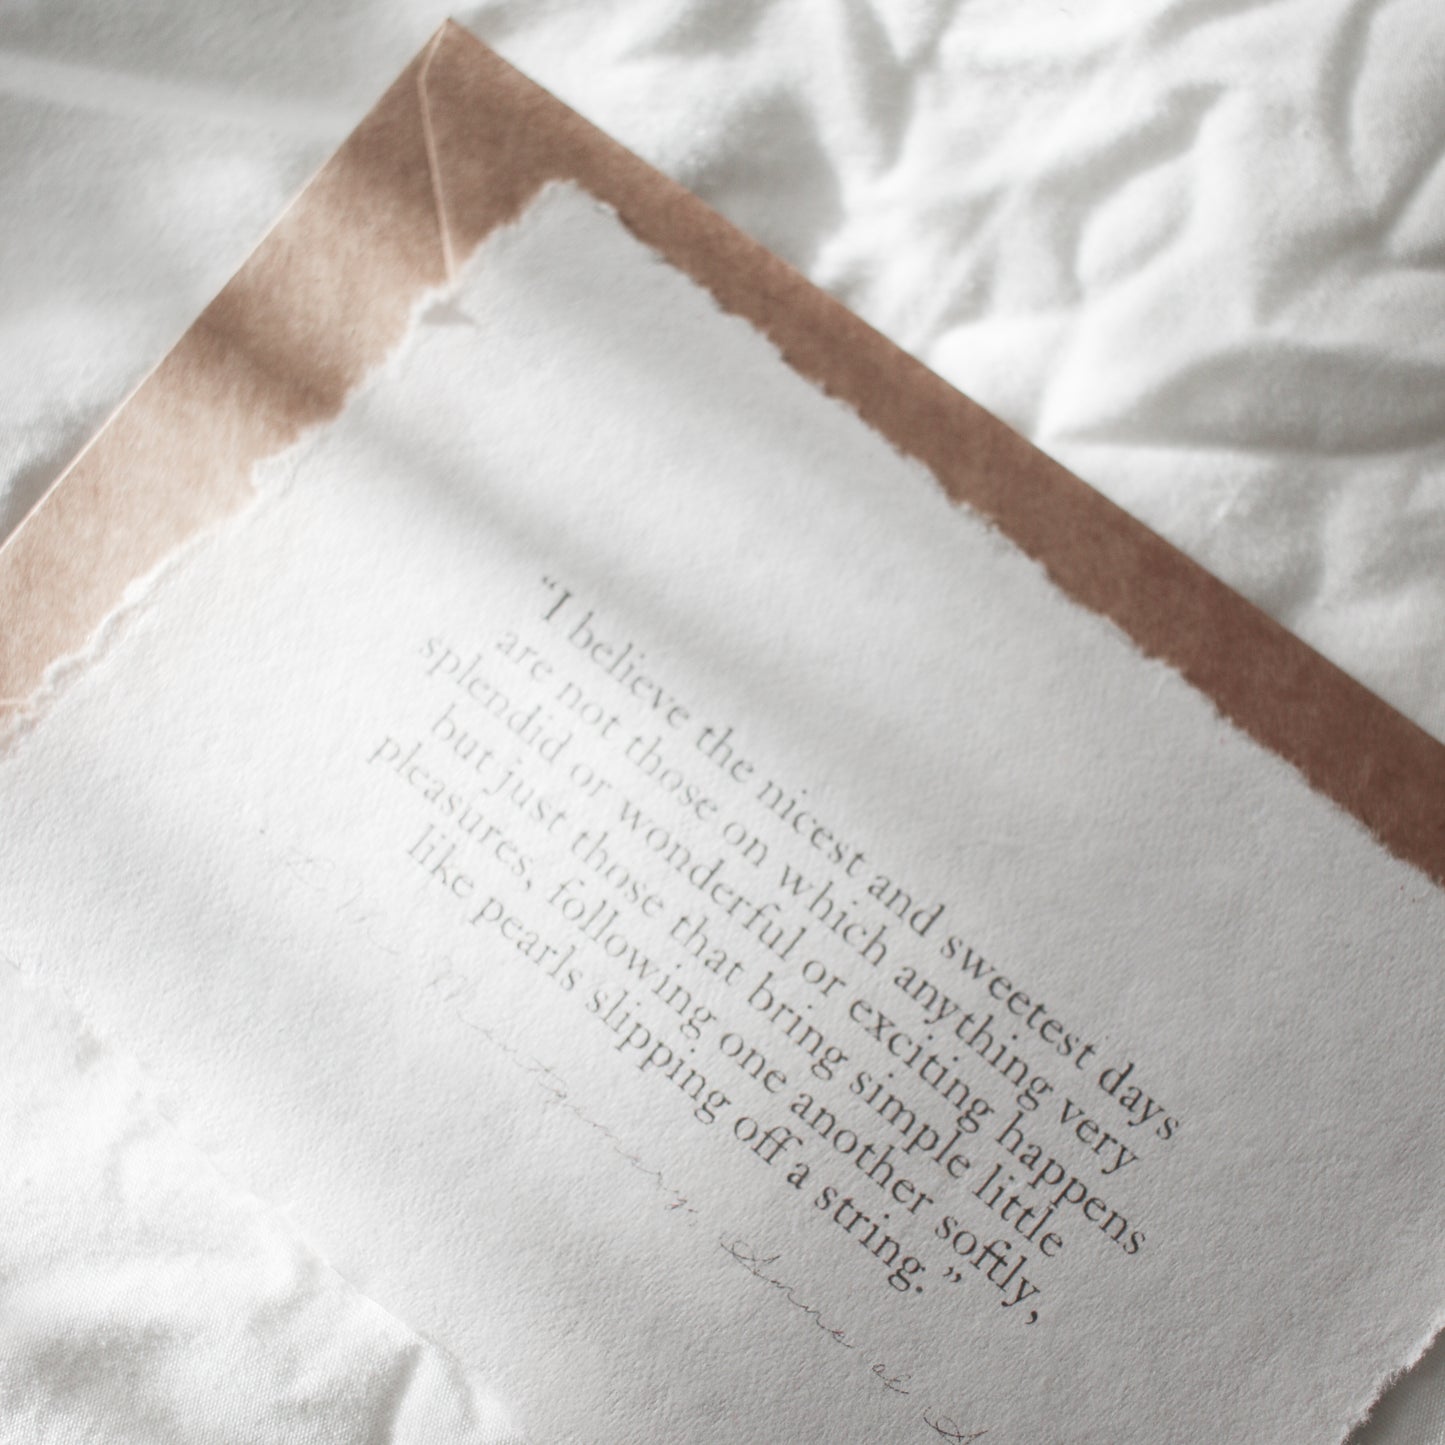 “I believe the nicest and sweetest days
are not those on which anything very
splendid or wonderful or exciting happens
but just those that bring simple little
pleasures, following one another softly,
like pearls slipping off a string.”
L.M. Montgomery, Anne of